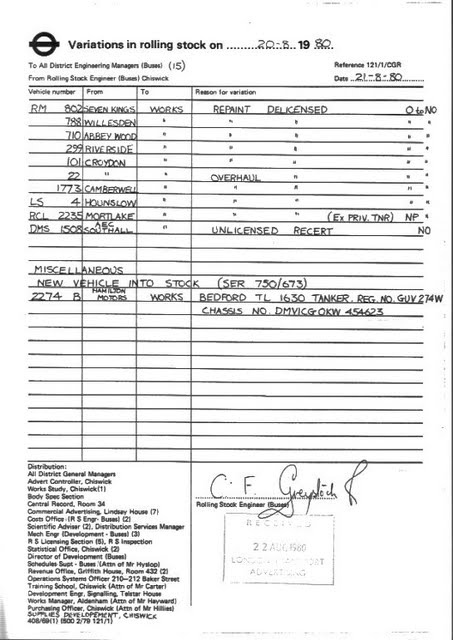 Variations in rolling stock on 20-8 1980.
To All District Engineering Managers (Buses) (15)
Reference 121/1/CGR
From Rolling Stock Engineer (Buses) Chiswick
Date 21-8-80
Vehicle number From To Reason for variation
RM 802 SEVEN KINGS WORKS REPAINT DELICENSED O to NO
788 WILLESDEN " " " " "
710 ABBEY WOOD " " " " "
299 RIVERSIDE " " " " "
101 CROYDON " " " " "
22 " " OVERHAUL " " "
1773 CAMBERWELL " " " " "
LS 4 HOUNSLOW " " " " "
RCL 2235 MORTLAKE " " " (EX PRIV. TNR) NP "
DMS 1508 AEC SOUTHALL UNLICENSED RECERT NO
MISCELLANEOUS
NEW VEHICLE INTO STOCK (SER 750/673)
2274 B HAMILTON MOTORS WORKS BEDFORD TL 1630 TANKER. REG. NO. GUV 274W
CHASSIS NO. DMVICGOKW 454623
Distribution:
All District General Managers
Advert Controller, Chiswick
Works Study, Chiswick(1)
Body Spec Section
Central Record, Room 34
Commercial Advertising, Lindsay House (7)
Costs Office (R S Engr- Buses) (2)
Scientific Adviser (2), Distribution Services Manager
Mech Engr (Development - Buses) (3)
R S Licensing Section (5), R S Inspection
Statistical Office, Chiswick (2)
Director of Development (Buses)
Schedules Supt - Buses (Attn of Mr Hyslop)
Revenue Office, Griffith House, Room 432 (2)
Operations Systems Officer 210-212 Baker Street
Training School, Chiswick (Attn of Mr Carter)
Development Engr, Signalling, Telstar House
Works Manager, Aldenham (Attn of Mr Hayward)
Purchasing Officer, Chiswick (Attn of Mr Hillies)
SUPPLIES DEVELOPEMENT, CHISWICK
408/69(1) (500 2/79 121/1)
C. F.
Rolling Stock Engineer (Buses)
RECEIVED
22 AUG 1980
LONDON TRANSPORT
ADVERTISING